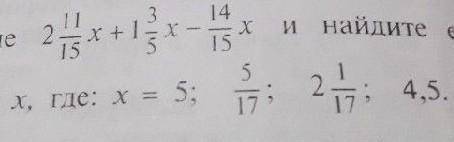 2 11/15 x + 1 3/5 x − 14/15 x и найдите
x, где: x = 5; 5/17; 2 1/17; 4,5.